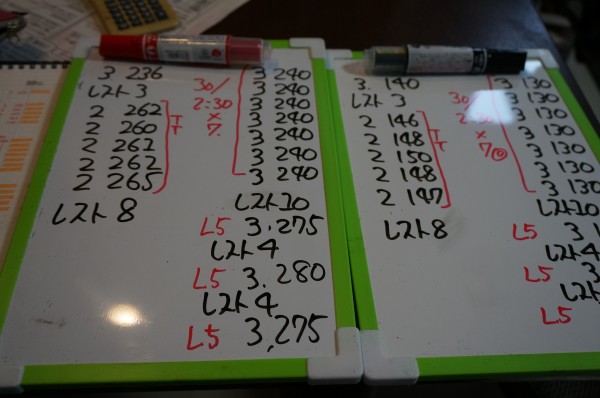 3 236
レスト3
2 262
2 260
2 262
2 262
2 265
レスト8
30/
2:30
×
7.
3 240
3 240
3 240
3 240
3 240
3 240
3 240
レスト10
L5 3.275
レスト4
L5 3.280
レスト4
L5 3,275
3. 140
レスト3
2 146
2 148
2 150
2 148
2 147
レスト8
30/
×
7
3 130
3 130
3 130
3 130
3 130
3 130
3 130
レスト10
L5 3.
レスト4
L5 3
L5